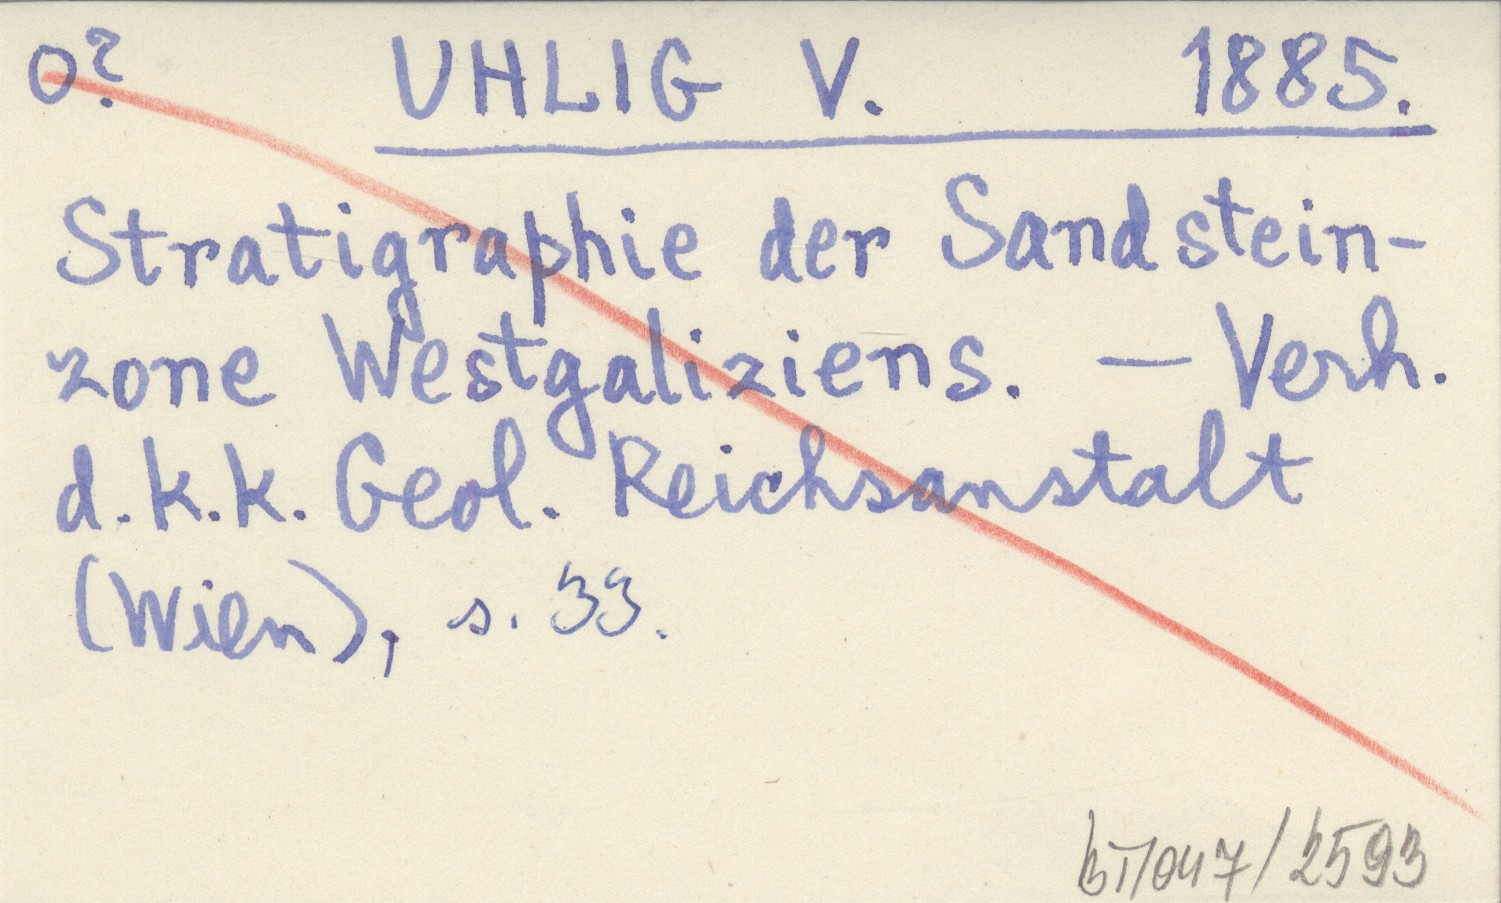 O? UHLIG V. 1885.
Stratigraphie der Sandstein-
zone Westgaliziens. — Verh.
d.k.k. Geol. Reichsanstalt
(Wien), s. 33.
bT/047/2593